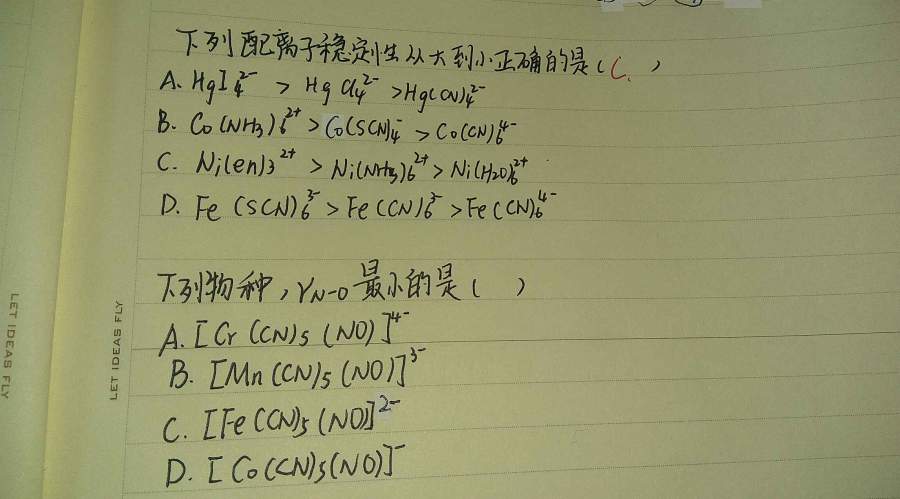 下列配离子稳定性从大到小正确的是(C.)
A. HgI₄²⁻ > HgCl₄²⁻ > Hg(CN)₄²⁻
B. Co(NH3)₆²⁺ > Co(SCN)₄⁻ > Co(CN)₆⁴⁻
C. Ni(en)3²⁺ > Ni(NH3)₆²⁺ > Ni(H2O)₆²⁺
D. Fe(SCN)₆³⁻ > Fe(CN)₆³⁻ > Fe(CN)₆⁴⁻
下列物种,γN-O最小的是( )
A. [Cr(CN)5(NO)]⁴⁻
B. [Mn(CN)5(NO)]³⁻
C. [Fe(CN)5(NO)]²⁻
D. [Co(CN)5(NO)]⁻
LET IDEAS FLY
LET IDEAS FLY